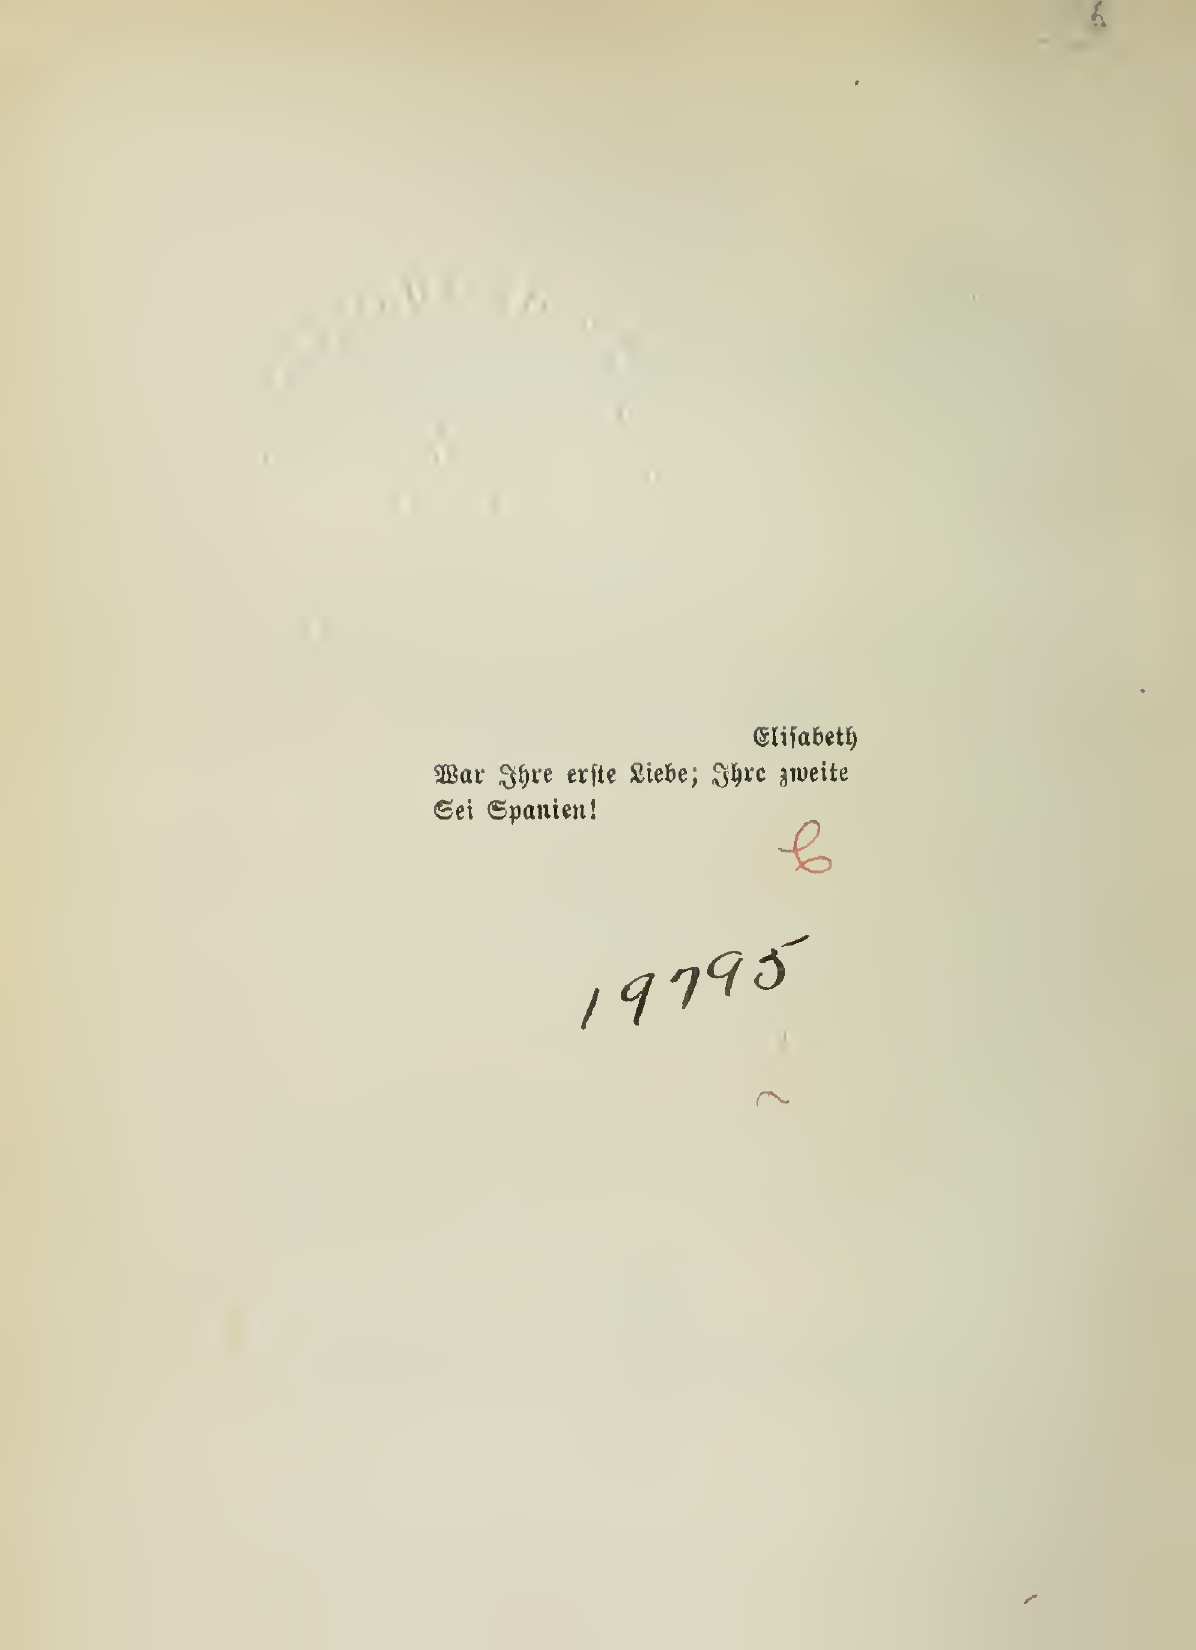 Elisabeth
War Ihre erste Liebe; Ihre zweite
Sei Spanien!
19795